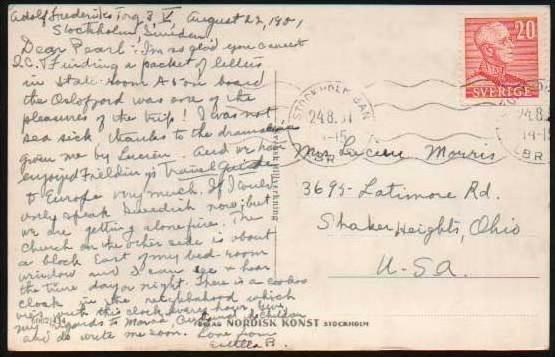 Adolf Fredericks Torg 3, V, August 22, 1951
Stockholm, Sweden
Dear Pearl: I'm so glad you went
D.C. Finding a packet of letters
in State-room A 5 on board
the Oslofjord was one of the
pleasures of the trip! I was not
sea sick, thanks to the dramamine
given me by Lucien. And we have
enjoyed Fielding's Travel Guide
to Europe very much. If I could
only speak Swedish now; but
we are getting along fine. The
church on the other side is about
a block East of my bed-room
window and I can see + hear
the time day or night. There is a
clock in the neighborhood which
with this clock every hour. Give
my regards to and children
and do write me soon. Love from
Estella B.
20
SVERIGE
STOCKHOLM BAN
24.8.51
-15
BR
24.8.
14-1
BR
Mrs Lucien Morris
3695- Latimore Rd.
Shaker Heights, Ohio
U-SA.
NORDISK KONST STOCKHOLM